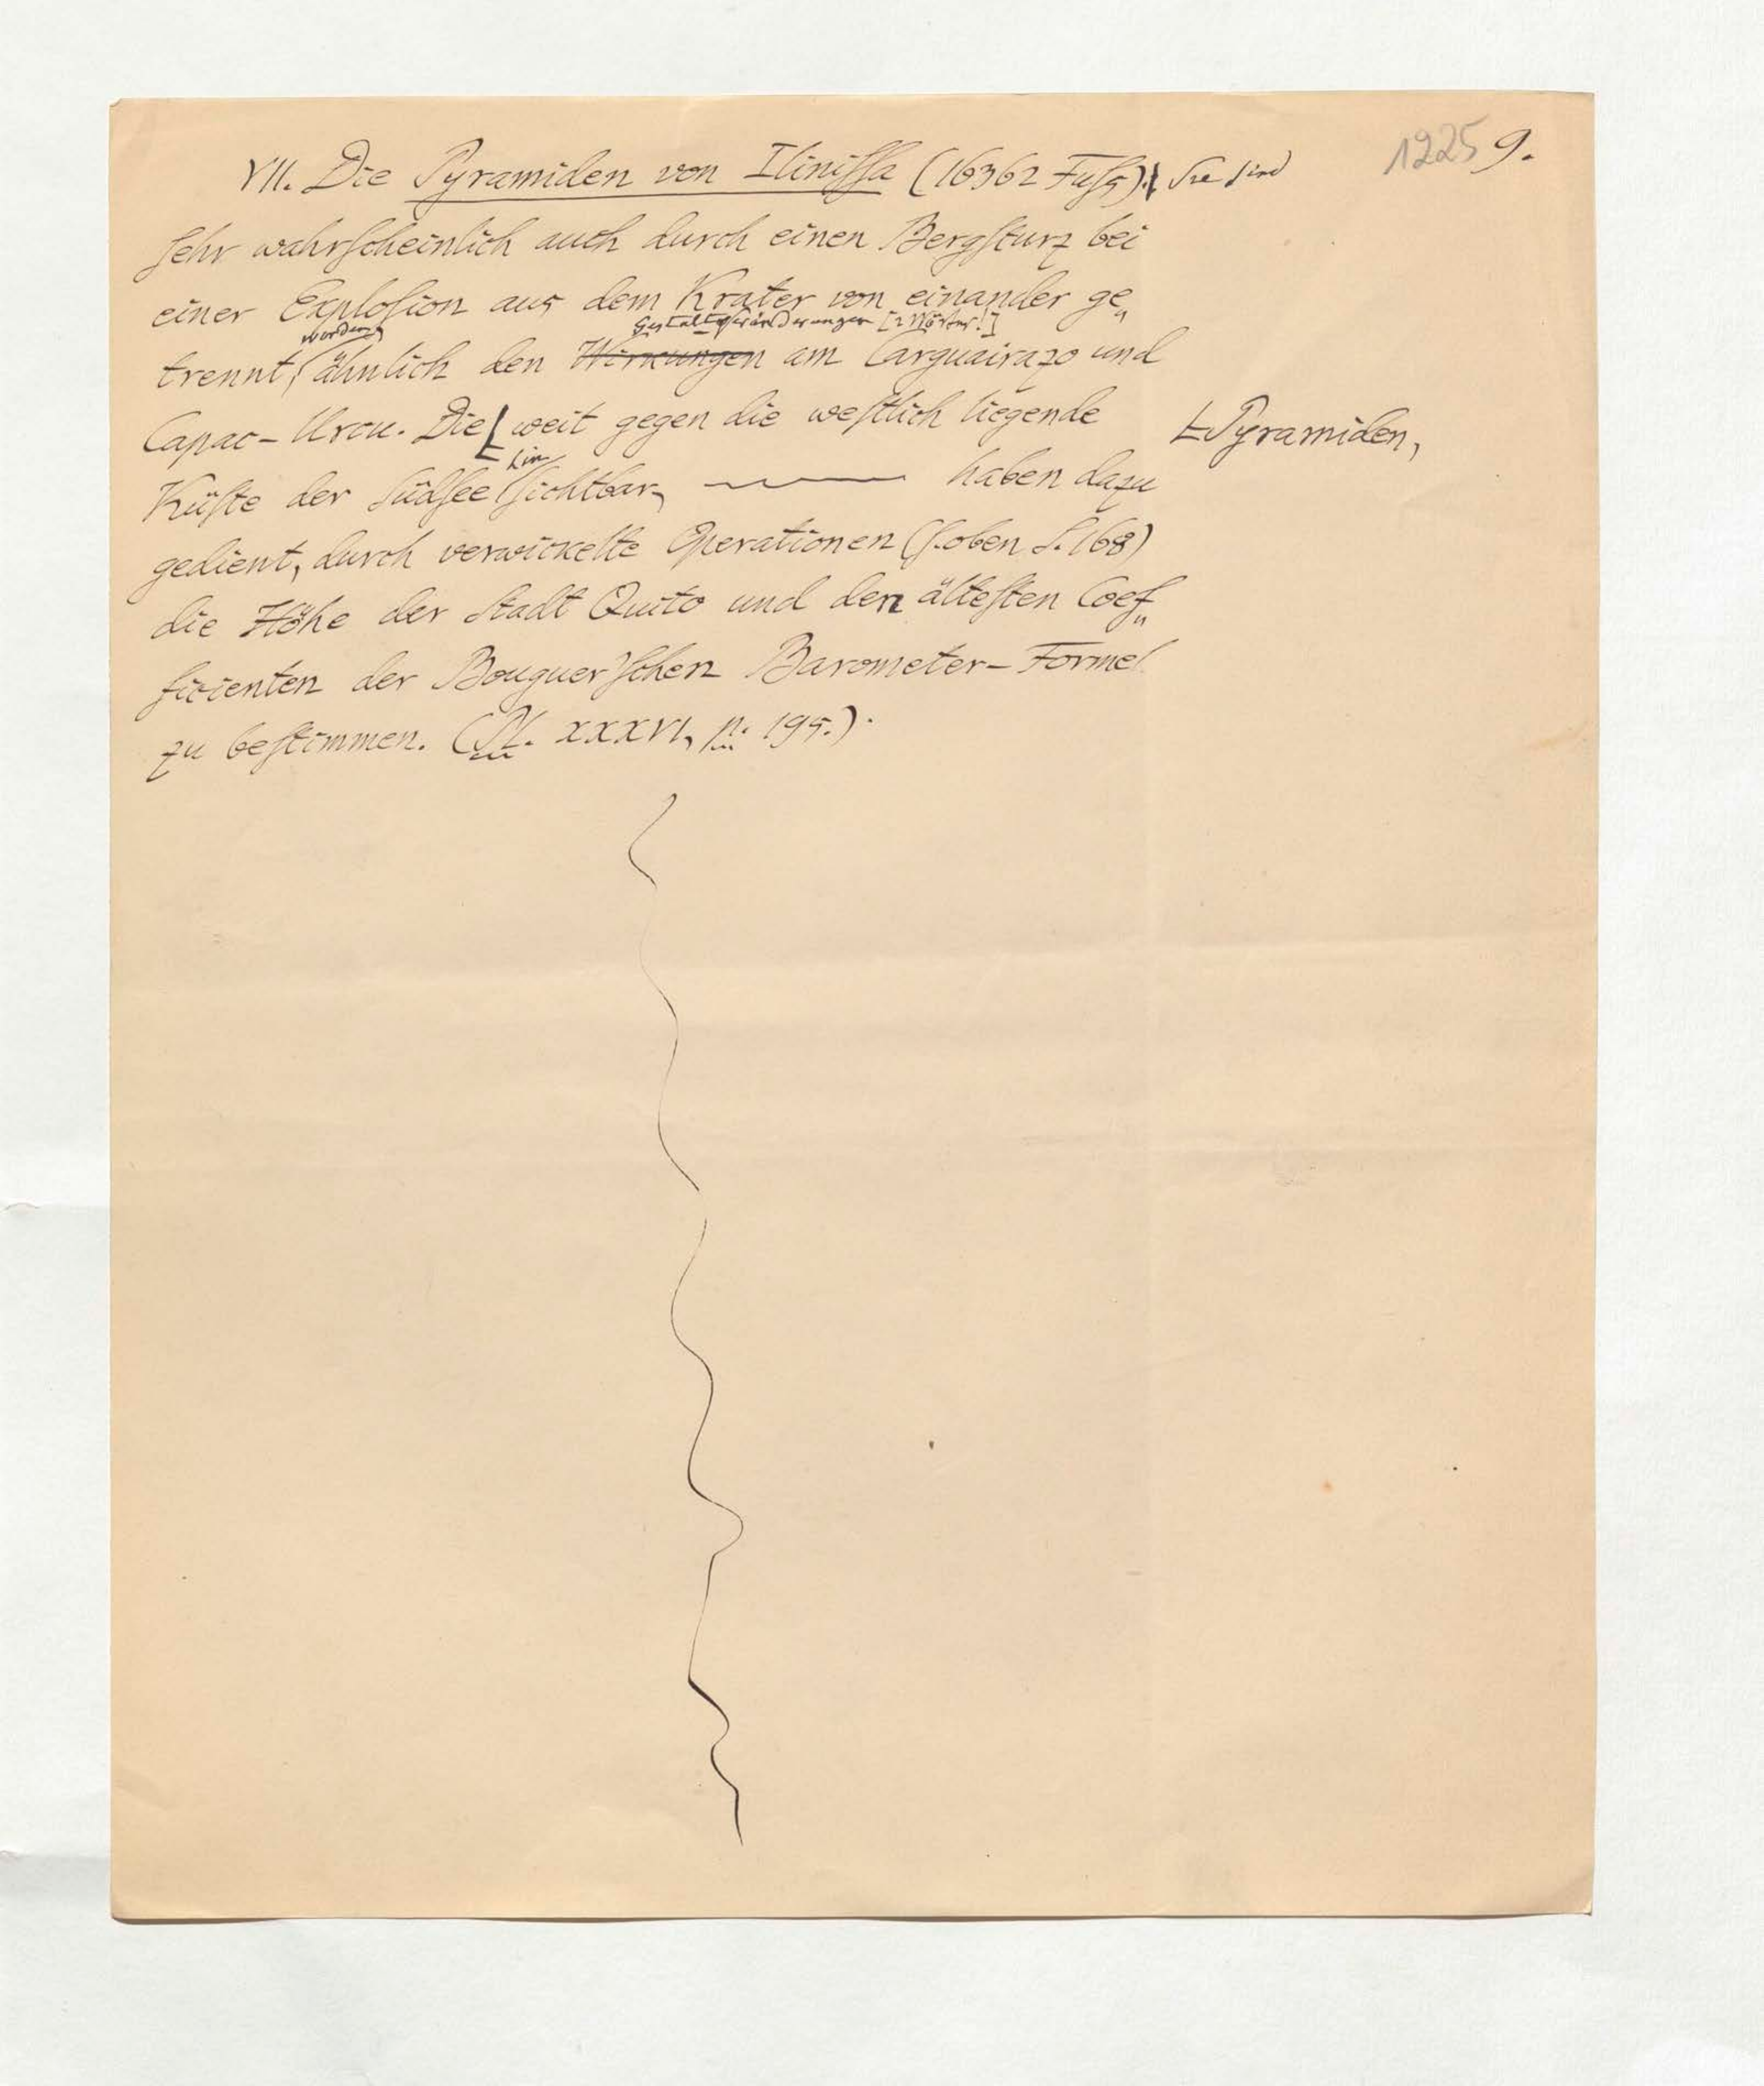 1225 9.
VII. Die Pyramiden von Iliniſſa (16362 Fuſs). Sie sind
ſehr wahrſcheinlich auch durch einen Bergſturz bei
einer Exploſion aus dem Krater von einander ge„
worden, Gestaltveränderungen [2 Wörter!]
trennt, ähnlich den Wirkungen am Carguairazo und
Capac-Urcu. Die weit gegen die weſtlich liegende
Pyramiden,
hin
Küſte der Südſee ſichtbar, haben dazu
gedient, durch verwickelte Operationen (ſ. oben S. 168)
die Höhe der Stadt Quito und den älteſten Coef„
ficienten der Bouguer'ſchen Barometer-Formel
zu beſtimmen. (Pl. XXXVI, p. 195.).